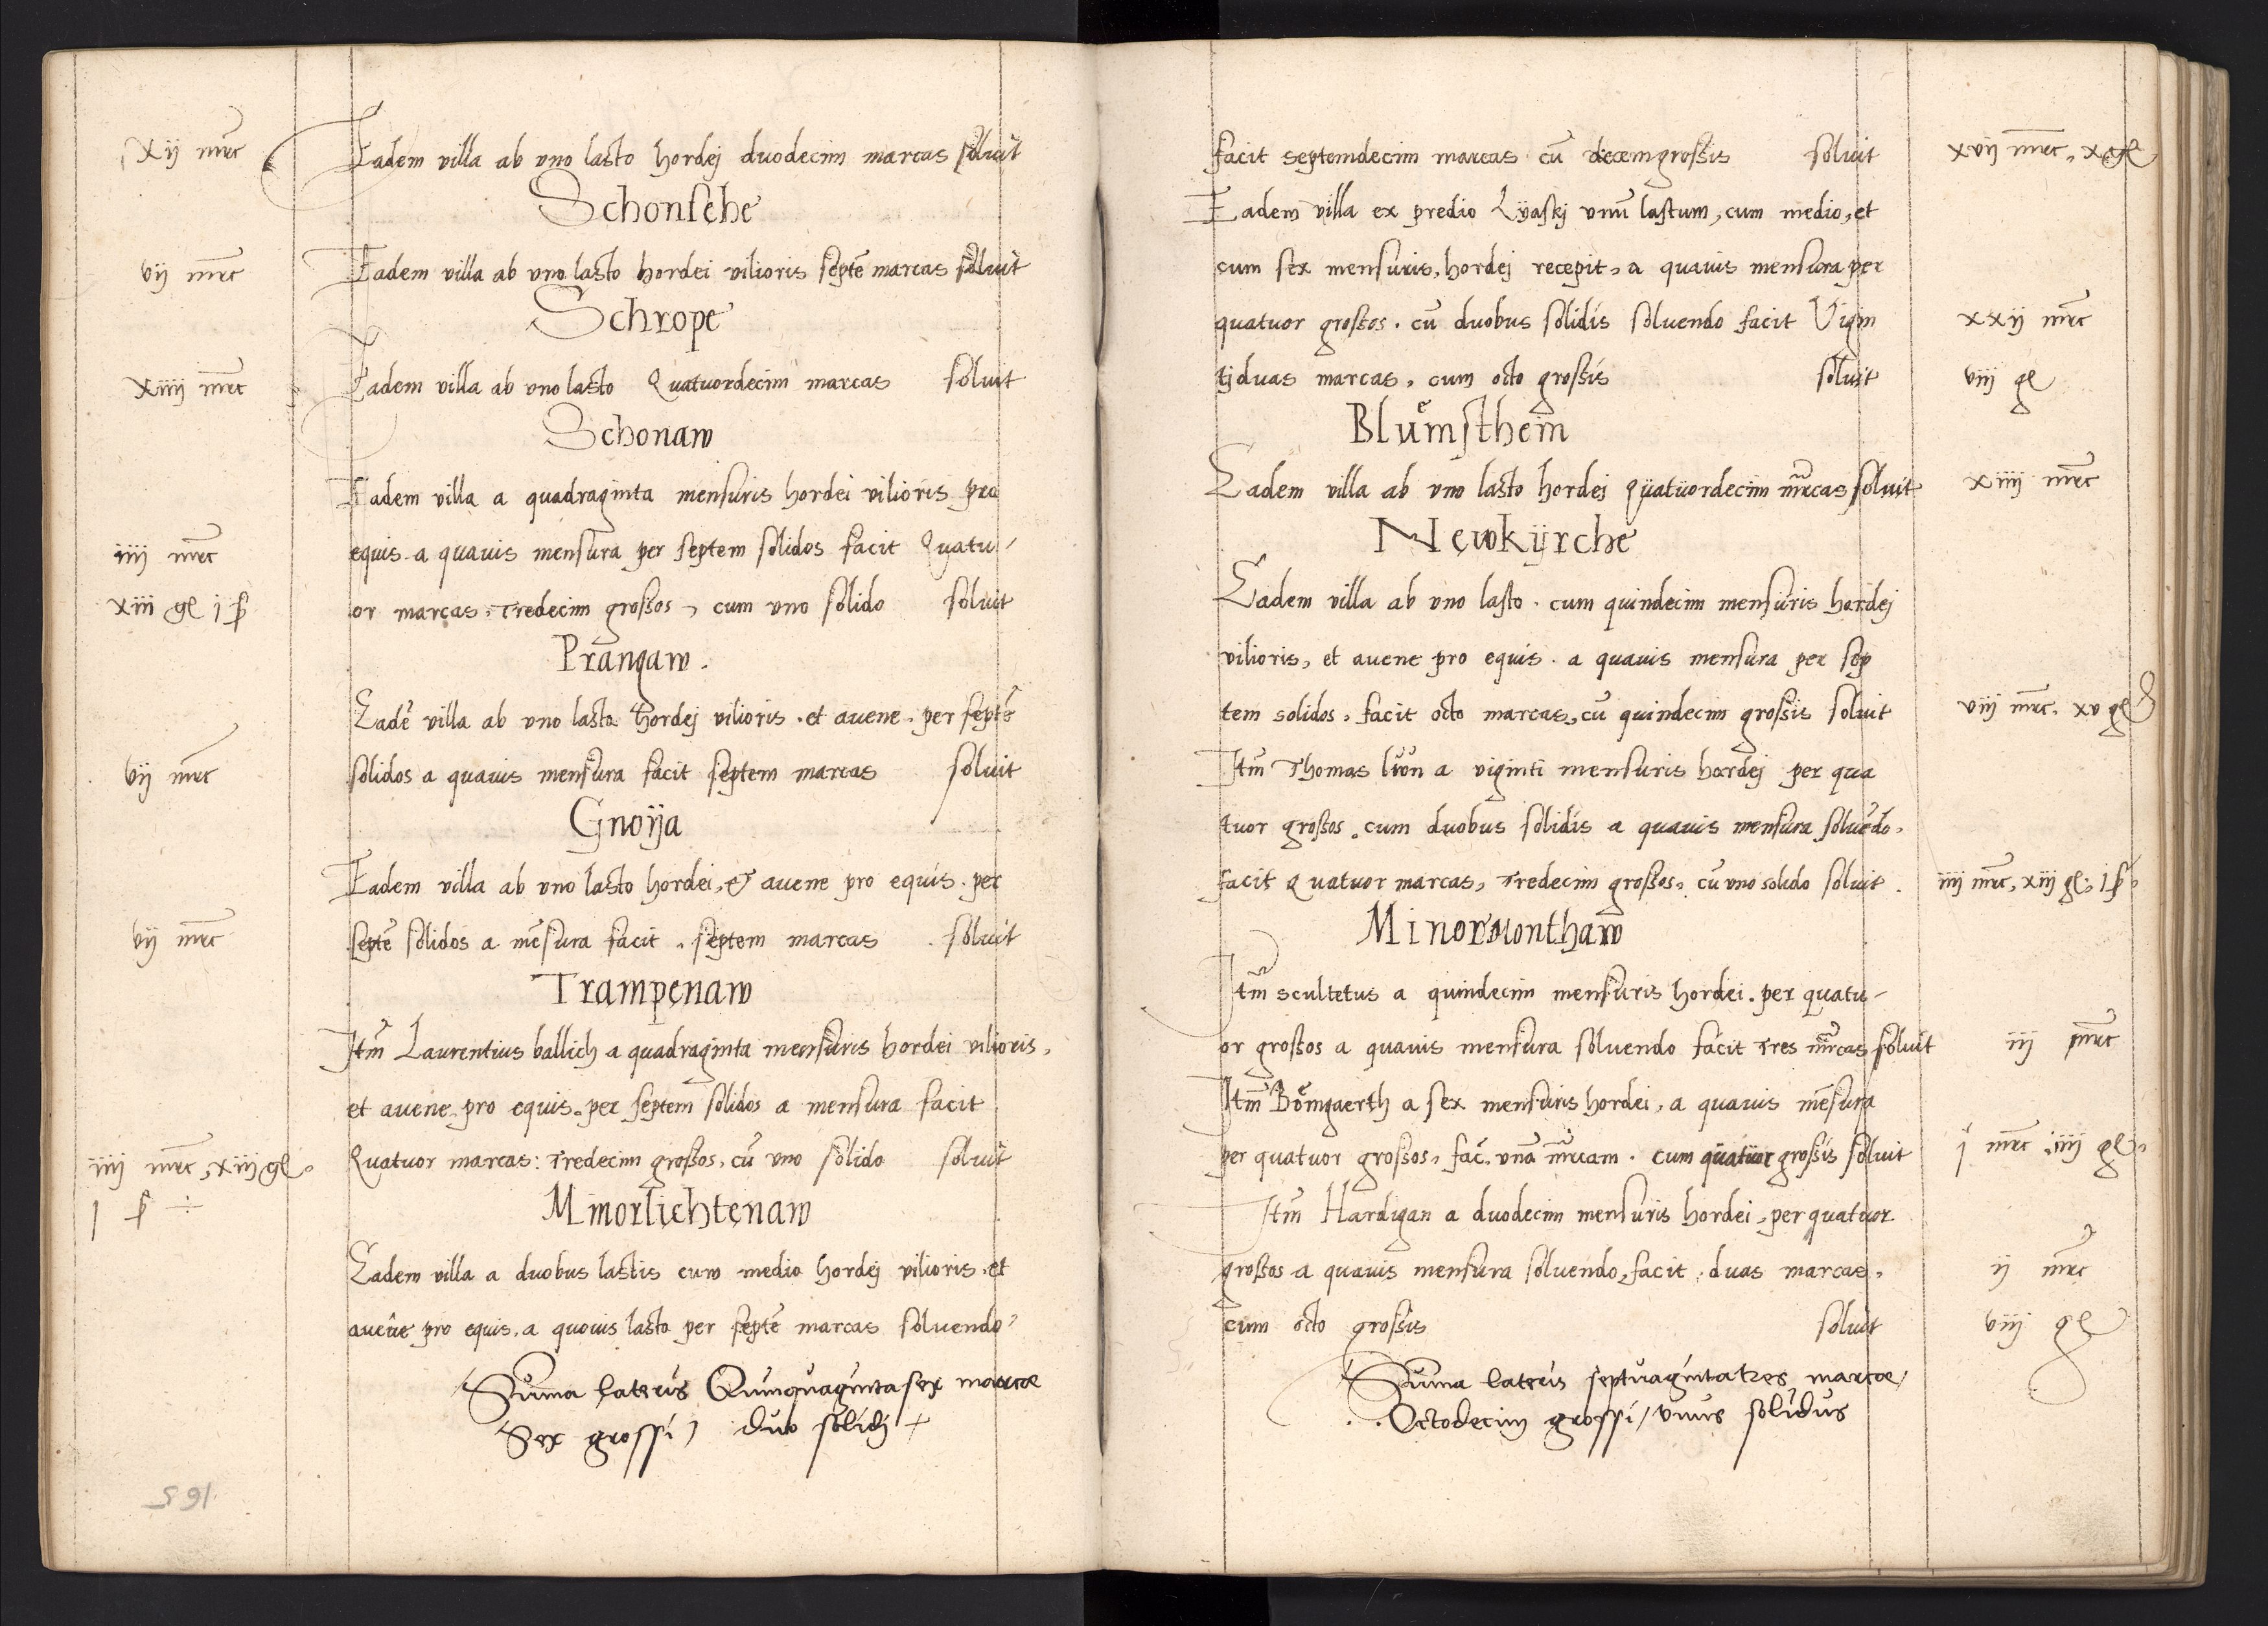 xij mrc Eadem villa ab vno lasto hordej duodecim marcas soluit
Schonsehe
vij mrc Eadem villa ab vno lasto hordei vilioris septẽ marcas soluit
Schrope
xiiij mrc Eadem villa ab vno lasto Quatuordecim marcas soluit
Schonaw
Eadem villa a quadraginta mensuris hordei vilioris pro
iiij mrc equis a quauis mensura per septem solidos facit Quatu-
xiii gͤ i ß or marcas, Tredecim grossos, cum vno solido soluit
Prangaw.
Eadẽ villa ab vno lasto hordej vilioris. et auene. per septẽ
vij mrc solidos a quauis mensura facit septem marcas soluit
Gnoÿa
Eadem villa ab vno lasto hordei, & auene pro equis. per
vij mrc septẽ solidos a mẽsura facit. septem marcas. soluit
Trampenaw
Itm̃ Laurentius ballich a quadraginta mensuris hordei vilioris,
et auene pro equis. per septem solidos a mensura facit
iiij mrc, xiij gͤ. Quatuor marcas: Tredecim grossos, cũ vno solido soluit
i ß ÷
Minorlichtenaw
Eadem villa a duobus lastis cum medio hordej vilioris, et
auene pro equis, a quouis lasto per septẽ marcas soluendo,
Suma lateris Quinquagintasex marcae
Sex grossi, duo solidj
165
facit septemdecim marcas cũ decemgrossis soluit xvij mrc, x gͤ
Eadem villa ex predio Lÿaskj vnũ lastum, cum medio, et
cum sex mensuris, hordej recepit, a quauis mensura per
quatuor grossos. cũ duobus solidis soluendo facit Vigin xxij mrc
tjduas marcas, cum octo grossis soluit viij gͤ
Blůmsthem
Eadem villa ab vno lasto hordej Quatuordecim mrcas soluit xiiij mrc
Newkÿrche
Eadem villa ab vno lasto. cum quindecim mensuris hordej
vilioris, et auene pro equis. a quauis mensura per sep
tem solidos, facit octo marcas, cũ quindecim grossis soluit viij mrc, xv gͤ
Itm̃ Thomas a viginti mensuris hordej per qua
tuor grossos. cum duobus solidis a quauis mensura soluẽdo,
facit Quatuor marcas, Tredecim grossos, cũ vno solido soluit. iiij mrc, xiij gͤ, i ß,
Minormonthaw
Itm̃ scultetus a quindecim mensuris hordei. per quatu-
or grossos a quauis mensura soluendo facit Tres mrcas soluit iij mrc
Itm̃ Bömgaerth a sex mensuris hordei, a quauis mẽsura
per quatuor grossos, fac̃. vnã mrcam. cum quatuor grossis soluit i mrc iiij gͤ,
Itm̃ Hardigan a duodecim mensuris hordei, per quatuor
grossos a quauis mensura soluendo, facit, duas marcas, ij mrc
cum octo grossis soluit viij gͤ
Suma lateris septuagintatres marcae,
Octodecim grossi, vnus solidus